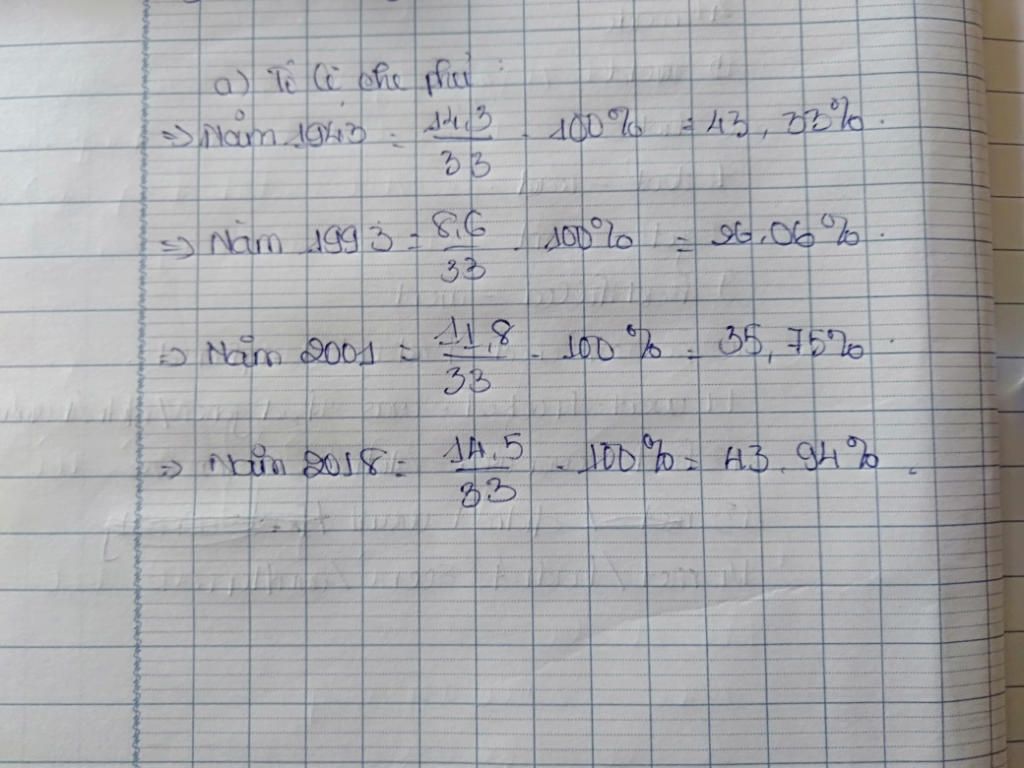 a) Tỉ lệ che phủ :
=> Năm 1943 = 14,3/33 . 100% = 43,33%.
=> Năm 1993 = 8,6/33 . 100% = 26,06%.
=> Năm 2001 = 11,8/33 . 100% = 35,75%.
=> Năm 2018 = 14,5/33 . 100% = 43.94%.